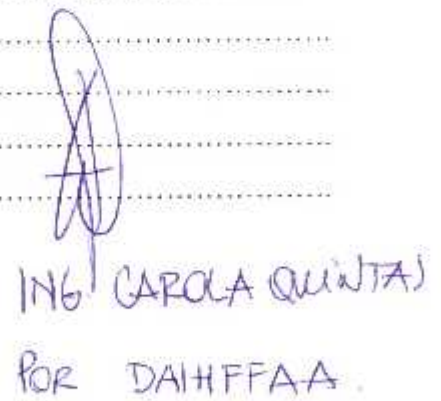 ING CAROLA QUINTAS
POR DAIHFFAA.